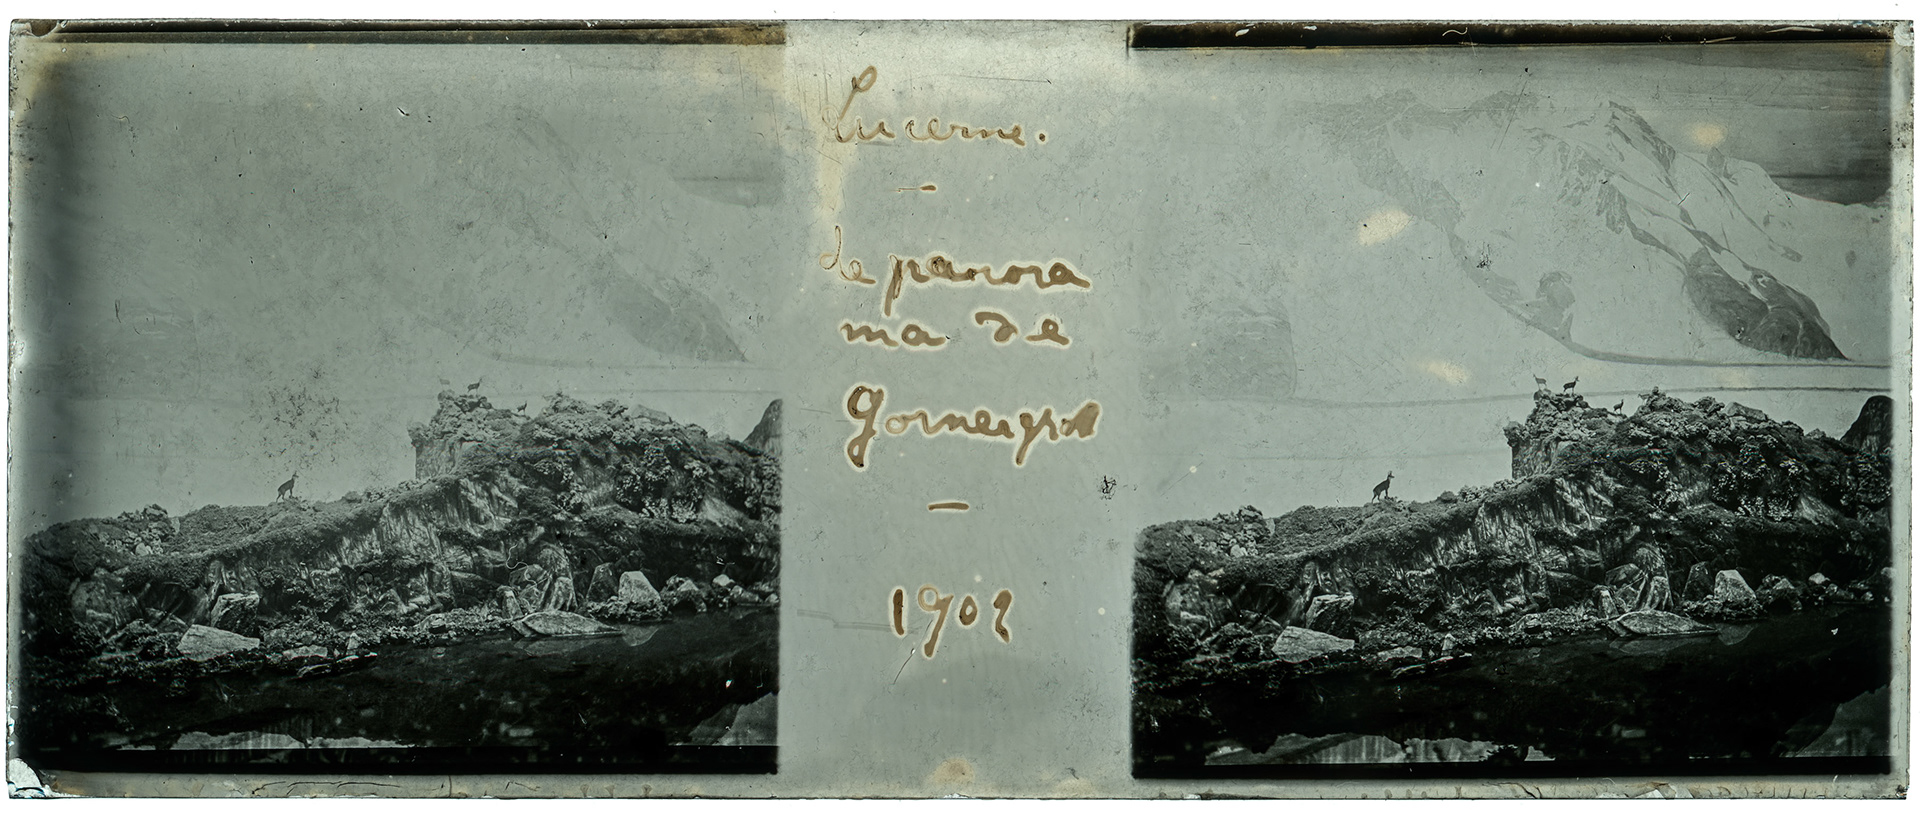 Lucerne.
—
le panora
ma de
Gornergrat
—
1902